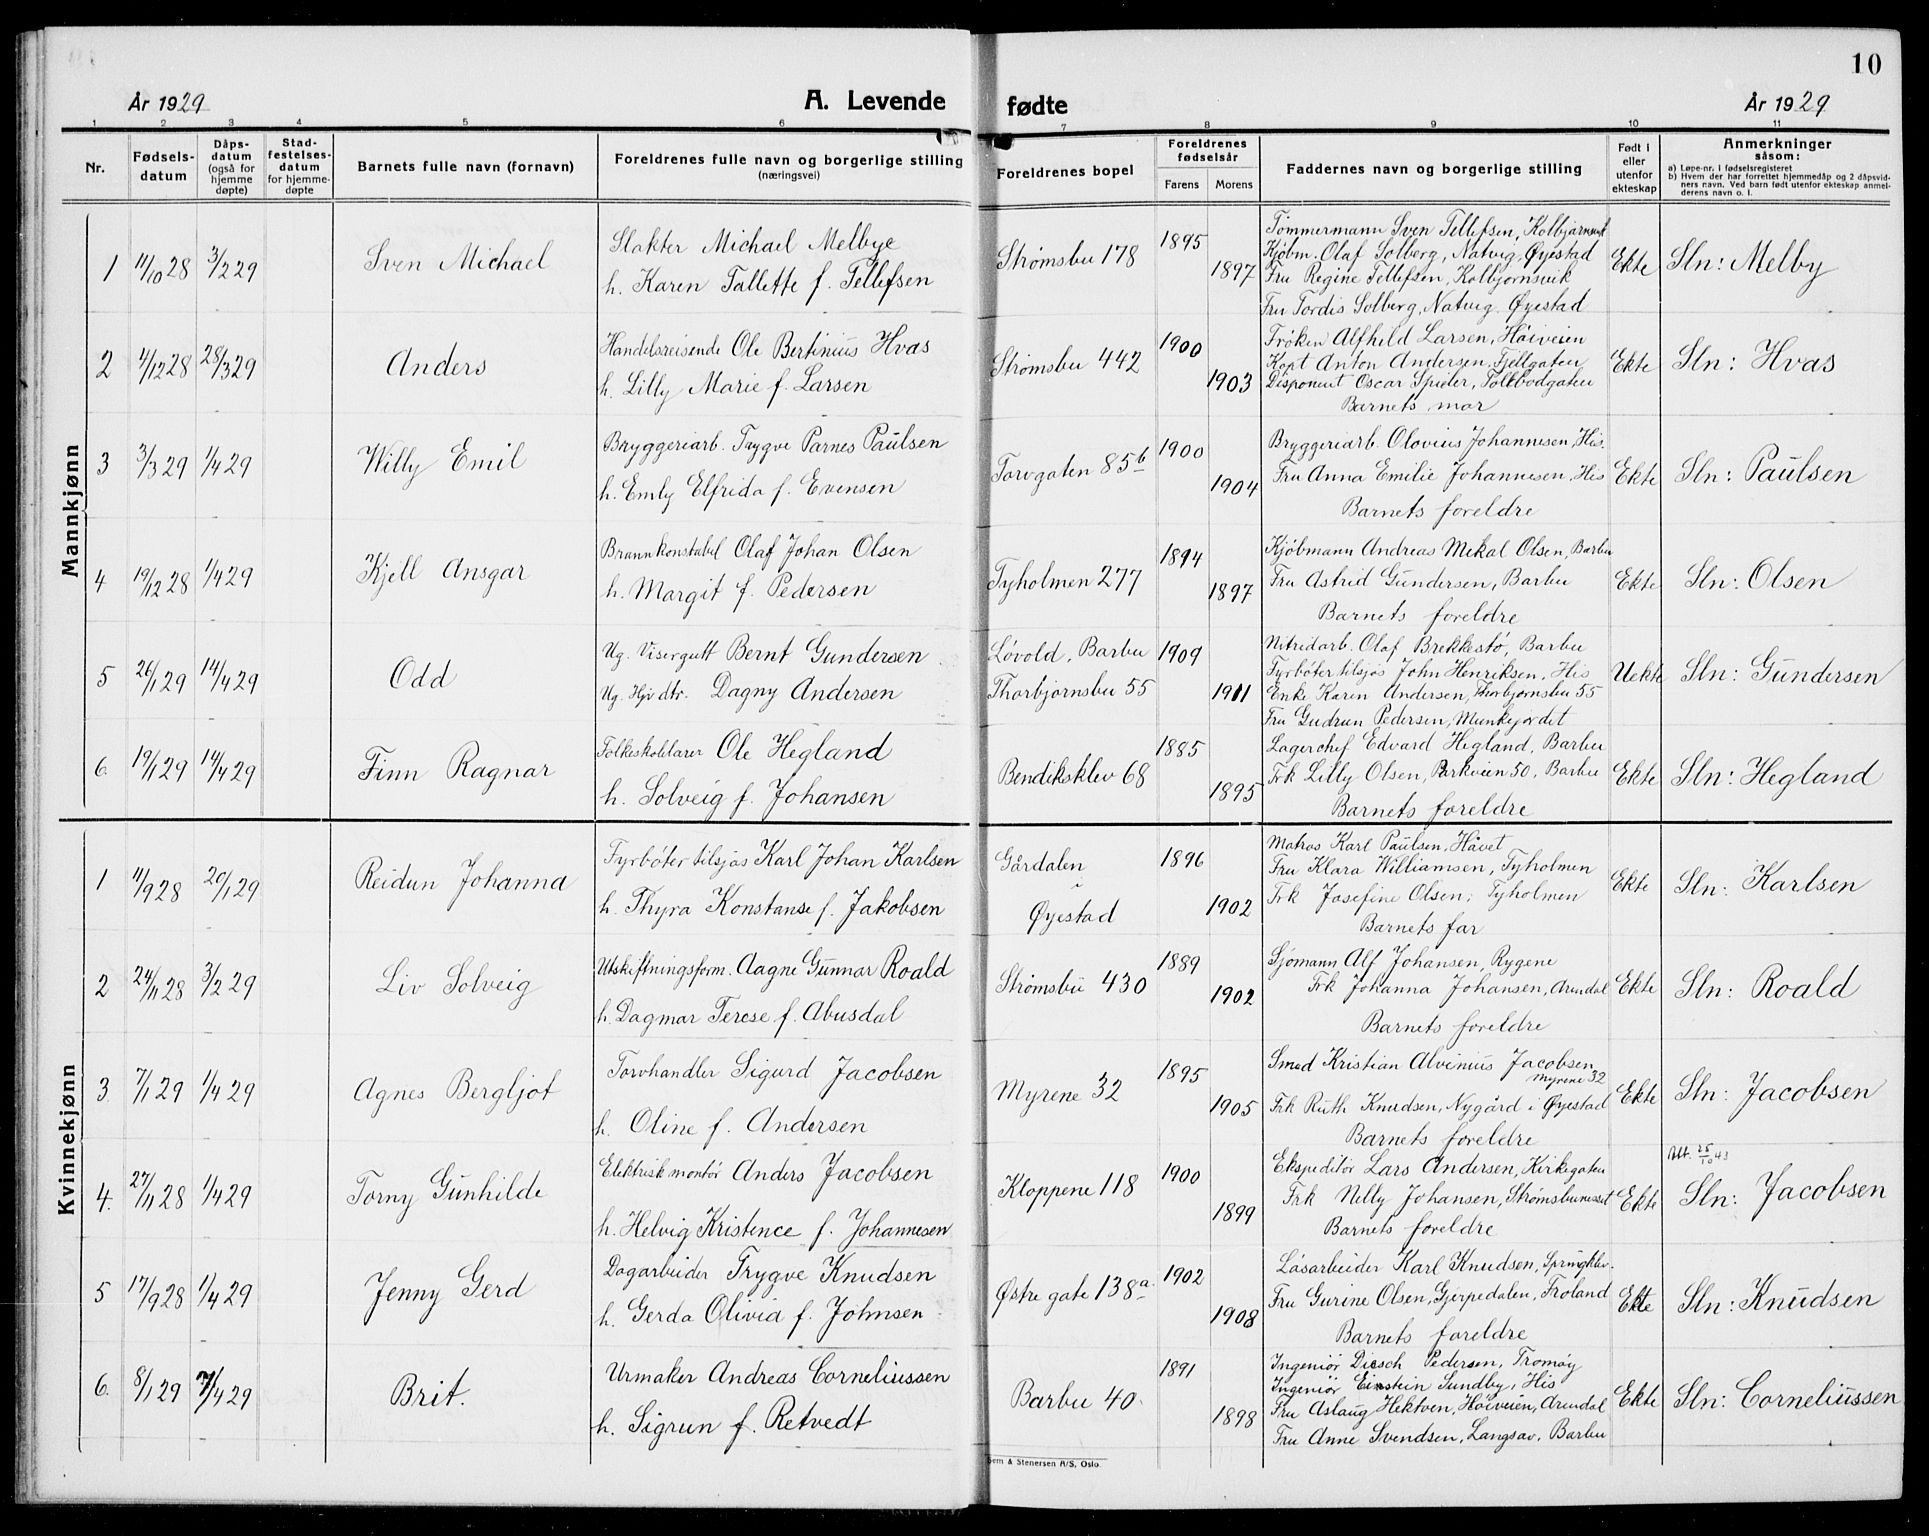 10
År 1929
A. Levende fødte
År 1929
1 2 3 4 5 6 7 8 9 10 11
Nr.
Fødsels-
datum
Dåps-
datum
(også for
hjemme
døpte)
Stad-
festelses-
datum
for hjemme-
døpte
Barnets fulle navn (fornavn)
Foreldrenes fulle navn og borgerlige stilling
(næringsvei)
Foreldrenes bopel
Foreldrenes
fødselsår
Farens Morens
Faddernes navn og borgerlige stilling
Født i
eller
utenfor
ekteskap
Anmerkninger
såsom:
a) Løpe-nr. i fødselsregisteret
b) Hvem der har forrettet hjemmedåp og 2 dåpsvid-
ners navn. Ved barn født utenfor ekteskap anmel-
derens navn o. l.
Mannkjønn
1 11/10 28 3/2 29 Sven Michael
Slakter Michael Melbye
h. Karen Tallette f. Tellefsen
Strømsbu 178 1895 1897
Tømmermann Sven Tellefsen, Kolbjørnsvik
Kjøbm. Olaf Solberg, Natvig, Øyestad
Fru Regine Tellefsen, Kolbjørnsvik
Fru Tordis Solberg, Natvig, Øyestad
Ekte Sln: Melby
2 4/12 28 28/3 29 Anders
Handelsreisende Ole Bertinius Hvas
h. Lilly Marie f. Larsen
Strømsbu 442 1900 1903
Frøken Alfhild Larsen, Høiveien
Kapt Anton Andersen, Fjellgaten
Disponent Oscar Spider, Tollbodgaten
Barnets mor
Ekte Sln: Hvas
3 3/3 29 1/4 29 Willy Emil
Bryggeriarb. Trygve Parnes Paulsen
h. Emly Elfrida f. Evensen
Torvgaten 85b 1900 1904
Bryggeriarb. Olovius Johannesen, His.
Fru Anna Emilie Johannesen, His
Barnets foreldre
Ekte Sln: Paulsen
4 19/12 28 1/4 29 Kjell Ansgar
Brannkonstabel Olaf Johan Olsen
h. Margit f. Pedersen
Tyholmen 277 1894 1897
Kjøbmann Andreas Mekal Olsen, Barbu
Fru Astrid Gundersen, Barbu
Barnets foreldre
Ekte Sln: Olsen
5 26/1 29 14/4 29 Odd
Ug. Visergutt Bernt Gundersen
Ug. Hjv dtr. Dagny Andersen
Løvold, Barbu 1909
Thorbjørnsbu 55 1911
Nitridarb. Olaf Brekkestø, Barbu
Fyrbøter tilsjøs John Henriksen, His
Enke Karen Andersen, Thorbjørnsbu 55
Fru Gudrun Pedersen, Munkejordet
Uekte Sln: Gundersen
6. 19/1 29 14/4 29 Finn Ragnar
Folkeskolelærer Ole Hegland
h. Solveig f. Johansen
Bendiksklev 68 1885 1895
Lagerchef Edvard Hegland, Barbu
Frk Lilly Olsen, Parkveien 50, Barbu
Barnets foreldre
Ekte Sln: Hegland
Kvinnekjønn
1 11/9 28 20/1 29 Reidun Johanna
Fyrbøter tilsjøs Karl Johan Karlsen
h. Thyra Konstanse f. Jakobsen
Gårdalen
i
Øyestad
1896 1902
Matros Karl Paulsen, Håvet
Fru Klara Williamsen, Tyholmen
Frk Josefine Olsen, Tyholmen
Barnets far
Ekte Sln: Karlsen
2 24/11 28 3/2 29 Liv Solveig
Utskiftningsform. Aagne Gunnar Roald
h. Dagmar Terese f. Abusdal
Strømsbu 430 1889 1902
Sjømann Alf Johansen, Rygene
Frk Johanna Johansen, Arendal
Barnets foreldre
Ekte Sln: Roald
3. 7/1 29 1/4 29 Agnes Bergljot
Torvhandler Sigurd Jacobsen
h. Oline f. Andersen
Myrene 32 1895 1905
Smed Kristian Alvinius Jacobsen
Myrene 32
Frk Ruth Knudsen, Nygård i Øyestad
Barnets foreldre
Ekte Sln: Jacobsen
4. 27/11 28 1/4 29 Torny Gunhilde
Elektrisk montør Anders Jacobsen
h. Helvig Kristence f. Johannesen
Kloppene 118 1900 1899
Ekspeditør Lars Andersen, Kirkegaten
Frk Nelly Johansen, Strømsbuneset
Barnets foreldre
Ekte Utt. 25/10 43
Sln: Jacobsen
5 17/9 28 1/4 29 Jenny Gerd
Dagarbeider Trygve Knudsen
h. Gerda Olivia f. Johnsen
Østre gate 138a 1902 1908
Løsarbeider Karl Knudsen, Springklev.
Fru Gurine Olsen, Gjerpedalen, Froland
Barnets foreldre
Ekte Sln: Knudsen
6. 8/1 29 7/4 29 Brit.
Urmaker Andreas Corneliussen
h. Sigrun f. Retvedt
Barbu 40. 1891 1898
Ingeniør Diesch Pedersen, Tromøy
Ingeniør Einstein Sundby, His
Fru Aslaug Hektven, Høiveien, Arendal
Fru Anne Svendsen, Langsæv, Barbu
Ekte Sln: Corneliussen
Sem & Stenersen A/S, Oslo.